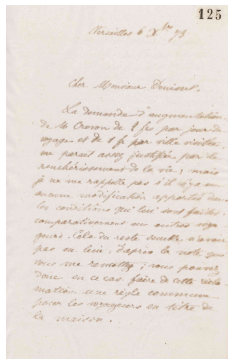 125
Versailles 6 Xbre 79
Cher Monsieur Denisart,
La demande d'augmentation
de M Crovon de 2 frs par jour de
voyage et de 1 fr par ville visitée
me parait assez justifiée par le
renchérissement de la vie, mais
je ne me rappelle pas s'il y a eu
aucune modification apportée dans
les conditions qui lui sont faites
comparativement aux autres voya
geurs. Cela du reste semble n'avoir
pas eu lieu, d'après la note que
vous me remettez; vous pouvez
donc en ce cas faire de cette récla
mation une règle commune
pour les voyageurs en titre de
la maison.